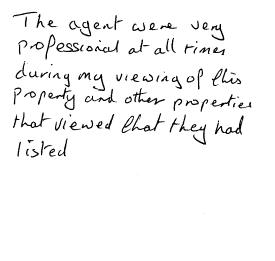 The agent were very
professional at all times
during my viewing of this
property and other properties
that viewed that they had
listed